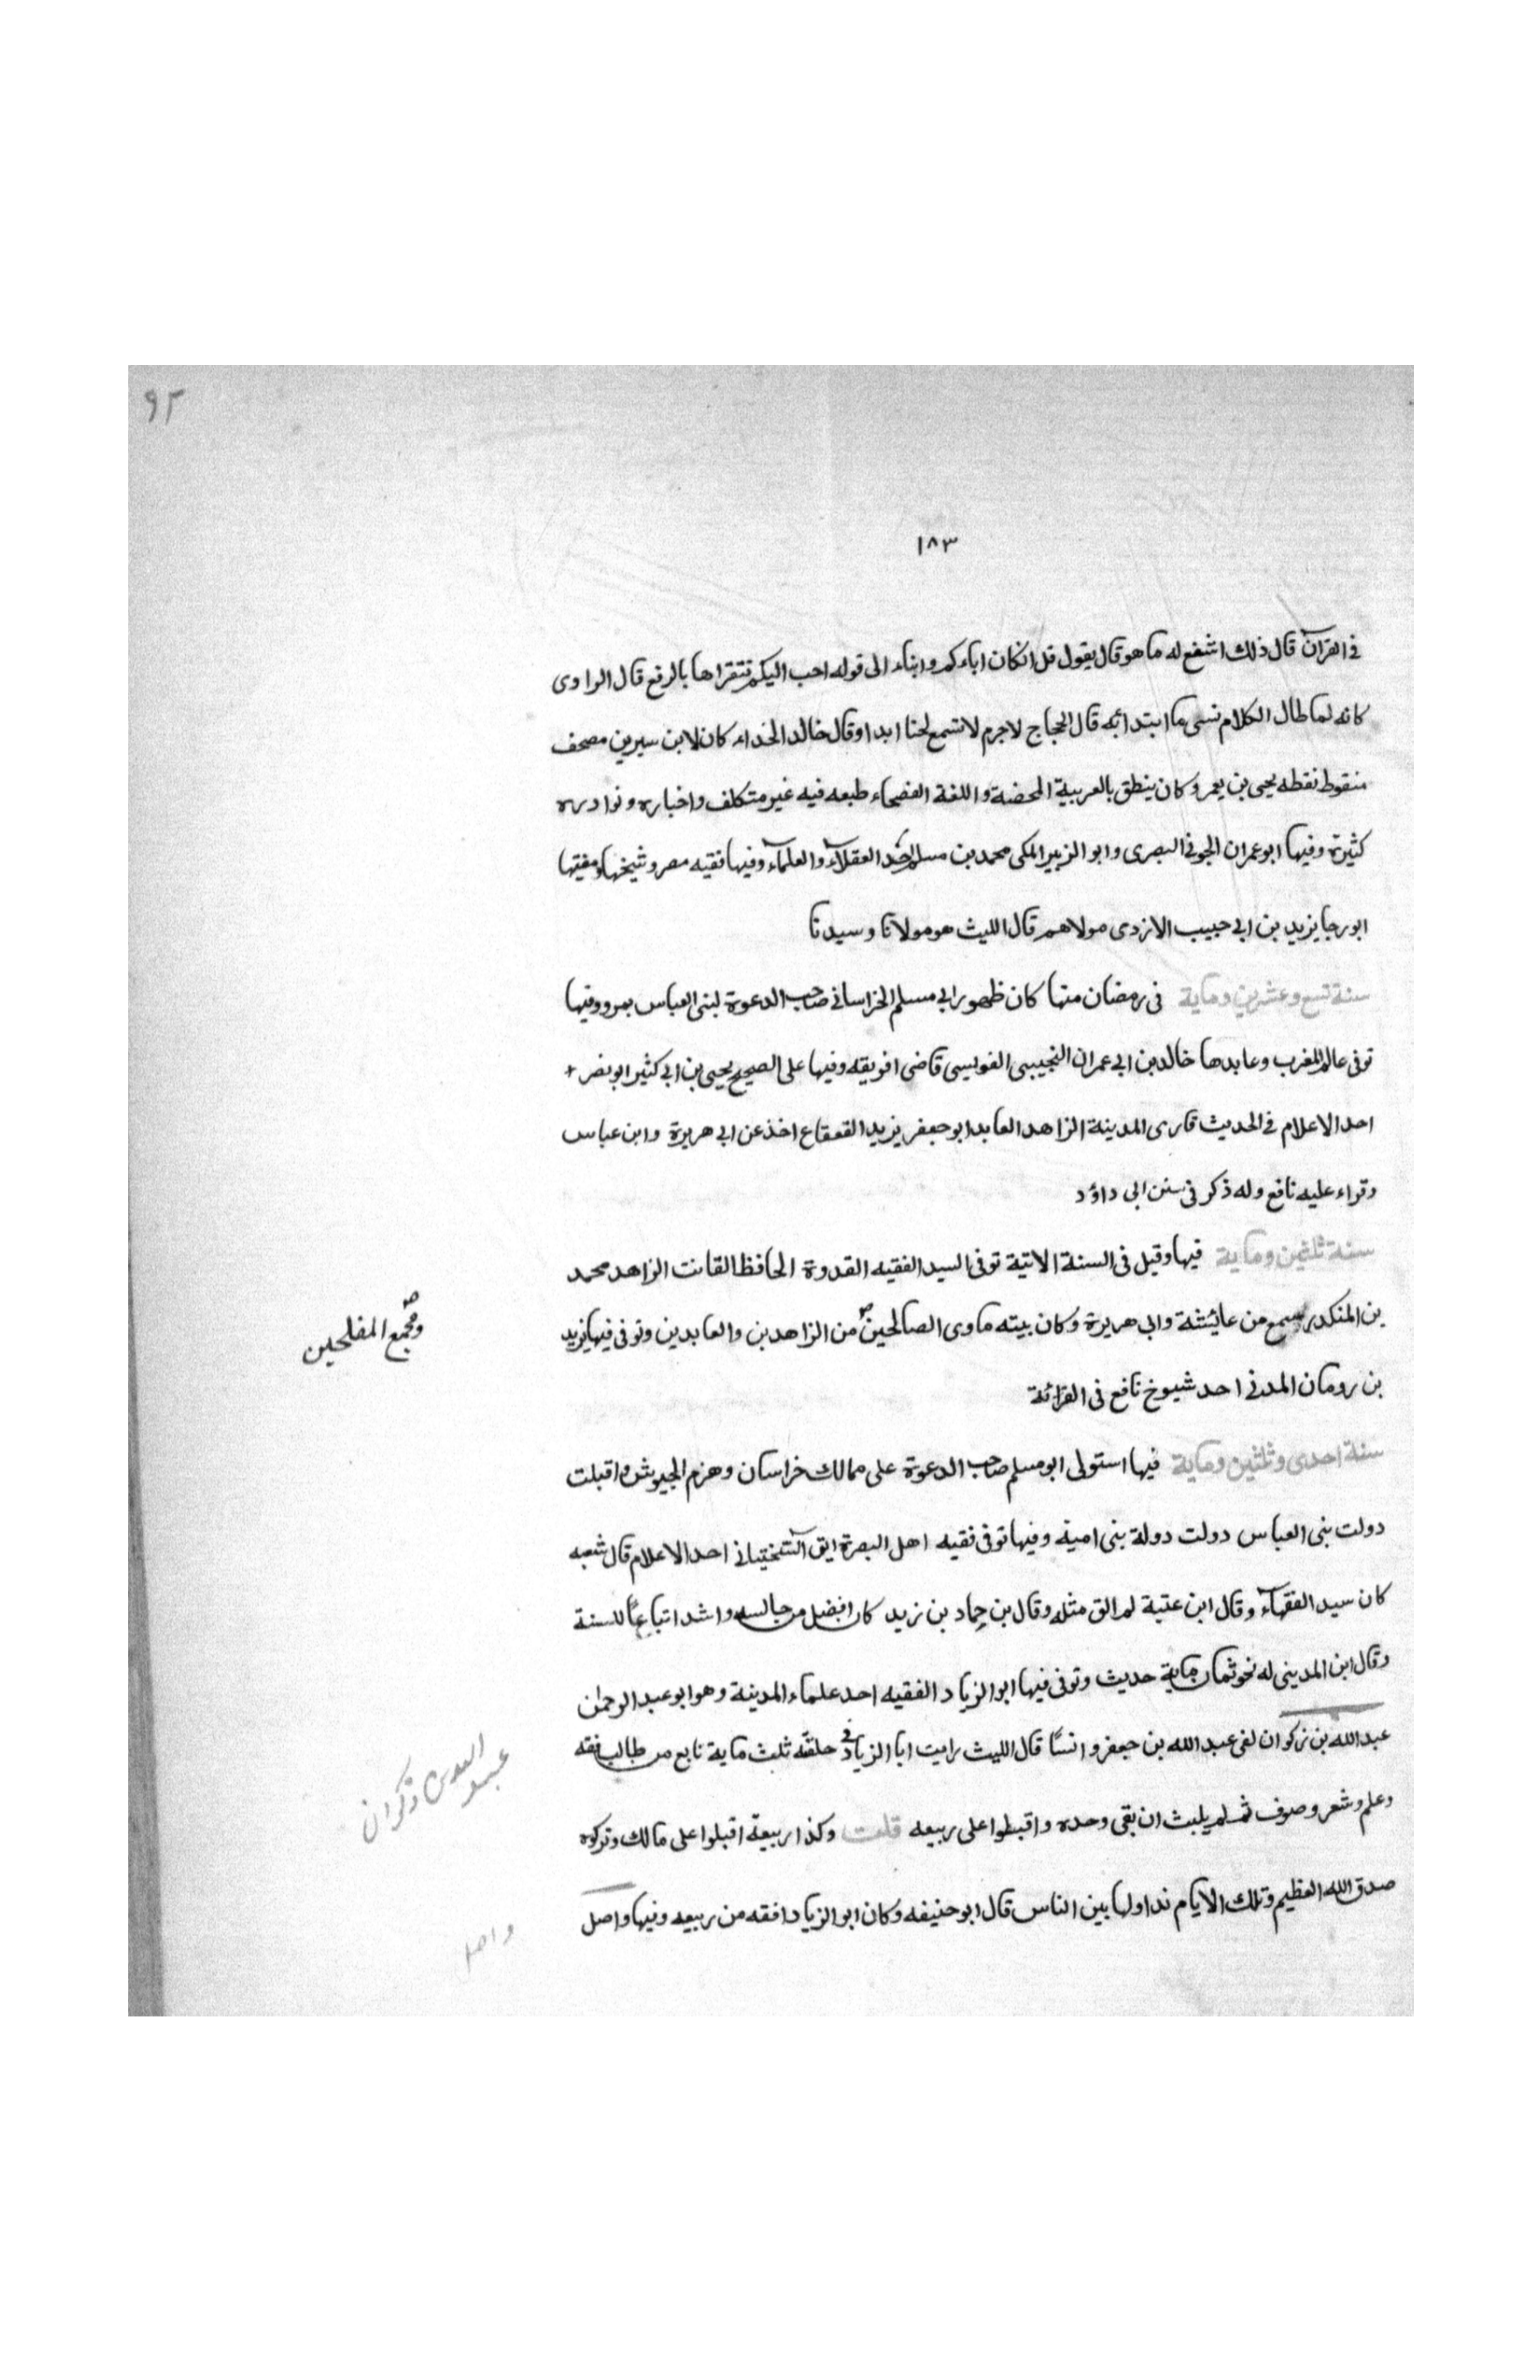 ٩٢
١٨٣
فى القرآن قال ذلك اشفع له ما هو قال يقول قل انكان اباءكم وابناء الى قوله احب اليكم فتقراها بالرفع قال الراوى
كانه لما طال الكلام نسى ما ابتدأبه قال الحجاج لاجرم لاتسمع لحنا ابدا وقال خالد الحذاء كان لابن سيرين مصحف
منقوط نقطه يحيى بن يعمر وكان ينطق بالعربية المحضة واللغة الفصحاء طبعه فيه غير متكلف واخباره ونوادره
كثيرة وفيها ابوعمران الجونى البصرى وابو الزبير المكى محمد بن مسلم احد العقلآء والعلمآء وفيها فقيه مصر وشيخها ومفتيها
ابورجا يزيد بن ابى حبيب الازدى مولاهم قال الليث هو مولانا وسيدنا
سنة تسع وعشرين وماية فى رمضان منها كان ظهور ابى مسلم الخراسانى صاحب الدعوة لبنى العباس بمرو وفيها
توفى عالم المغرب وعابدها خالد بن ابى عمران التجيبى الفويسى قاضى افريقه وفيها على الصحيح يحيى بن ابى كثير ابو نصر +
احد الاعلام فى الحديث قارى المدينة الزاهد العابد ابو جعفر يزيد القعقاع اخذ عن ابى هريرة وابن عباس
وقراء عليه نافع وله ذكر فى سنن ابى داؤد
سنة ثلثين وماية فيها وقيل فى السنة الاتية توفى السيد الفقيه القدوة الحافظ القانت الزاهد محمد
بن المنكدر سمع من عائشة وابى هريرة وكان بيته ماوى الصالحين من الزاهدين والعابدين وتوفى فيها يزيد
ومجمع المفلحين صح
بن رومان المدنى احد شيوخ نافع فى القرائة
سنة احدى وثلثين وماية فيها استولى ابو مسلم صاحب الدعوة على ممالك خراسان وهزم الجيوش واقبلت
دولت بنى العباس دولت دولة بنى امية وفيها توفى فقيه اهل البصرة ايوب السختيانى احد الاعلام قال شعبه
كان سيد الفقهآء وقال ابن عتبة لم الق مثله وقال بن حماد بن زيد كان افضل من جالسه واشد اتباعًا للسنة
وقال ابن المدينى له نحو ثمان ماية حديث وتوفى فيها ابو الزياد الفقيه احد علماء المدينة وهو ابو عبد الرحمن
عبد الله بن زكوان لقى عبد الله بن جعفر وانسًا قال الليث رايت ابا الزياد فى حلقه ثلث ماية تابع من طالب فقه
عبد الله بن ذكوان
وعلم وشعر وصوف ثم لم يلبث ان بقى وحده واقبطوا على ربيعه قلت وكذا ربيعة اقبلوا على مالك وتركوه
صدق الله العظيم وتلك الايام نداولها بين الناس قال ابو حنيفه وكان ابو الزياد افقه من ربيعه وفيها واصل
واصل